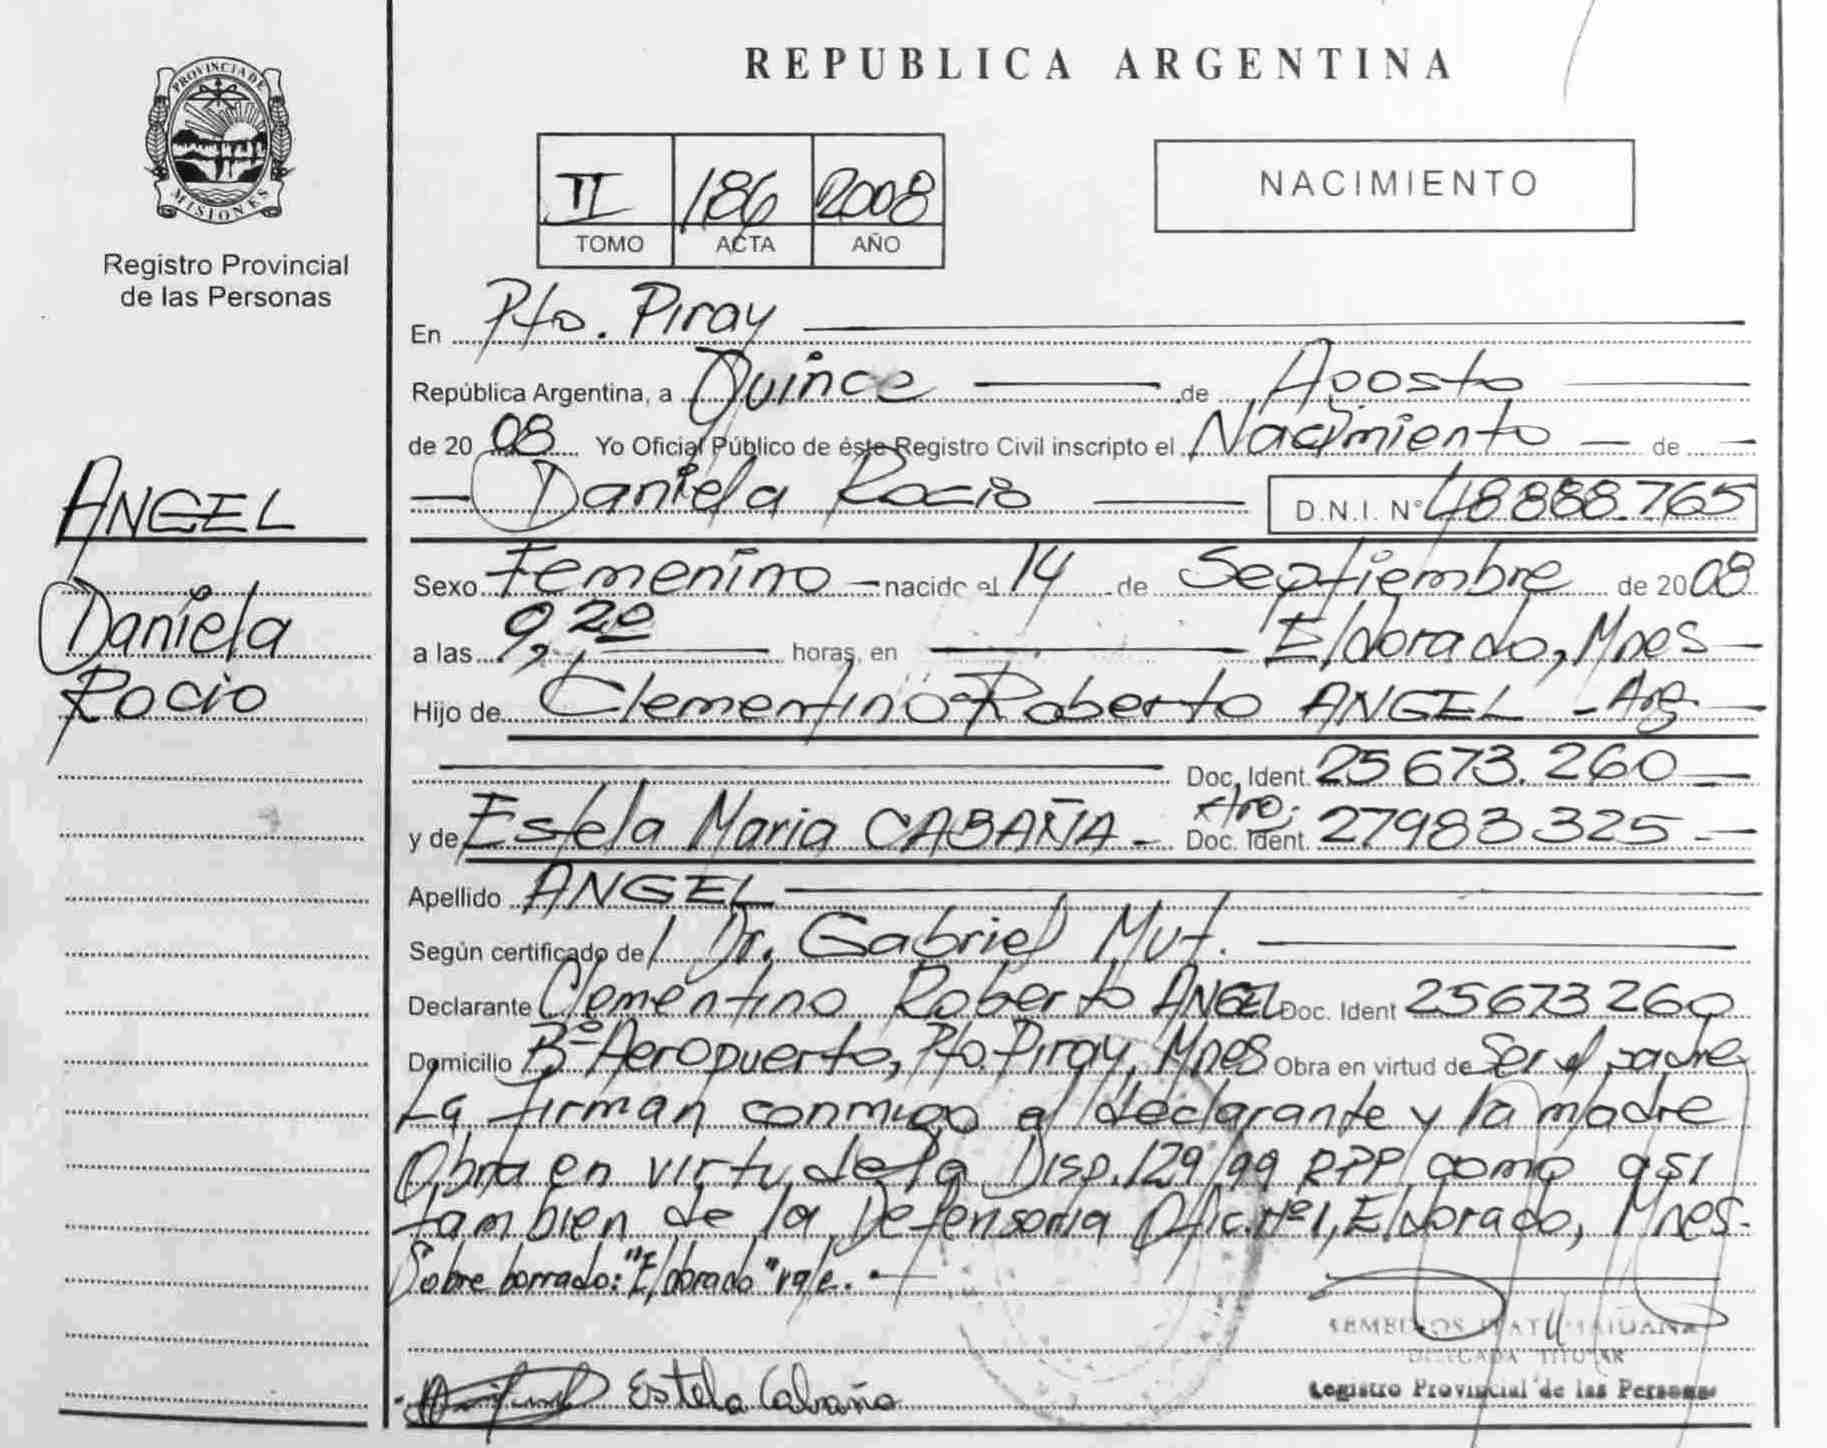 PROVINCIA DE
MISIONES
Registro Provincial
de las Personas
ANGEL
Daniela
Rocio
REPUBLICA ARGENTINA
II 186 2008
TOMO ACTA AÑO
NACIMIENTO
En Pto. Piray
República Argentina, a Quince de Agosto
de 20 08 Yo Oficial Público de éste Registro Civil inscripto el Nacimiento de
Daniela Rocio D.N.I. Nº 48.888.765
Sexo Femenino nacido el 14 de Septiembre de 2008
a las 9,20 horas, en Eldorado, Mnes
Hijo de Clementino Roberto ANGEL - Arg
Doc. Ident. 25673.260
y de Estela Maria CABAÑA - Doc. Ident. 27983325
Apellido ANGEL
Según certificado de Dr. Gabriel Mut.
Declarante Clementino Roberto ANGEL Doc. Ident 25673260
Domicilio Bº Aeropuerto, Pto. Piray, Mnes Obra en virtud de Ser el padre
La firman conmigo el declarante y la madre
Obra en virtu de la Disp. 129/99 RPP como asi
tambien de la Defensoria Ofic. Nº 1, Eldorado, Mnes.
Sobre borrado: "Eldorado" vale.
DELEGADA TITULAR
Registro Provincial de las Personas
Estela Cabaña